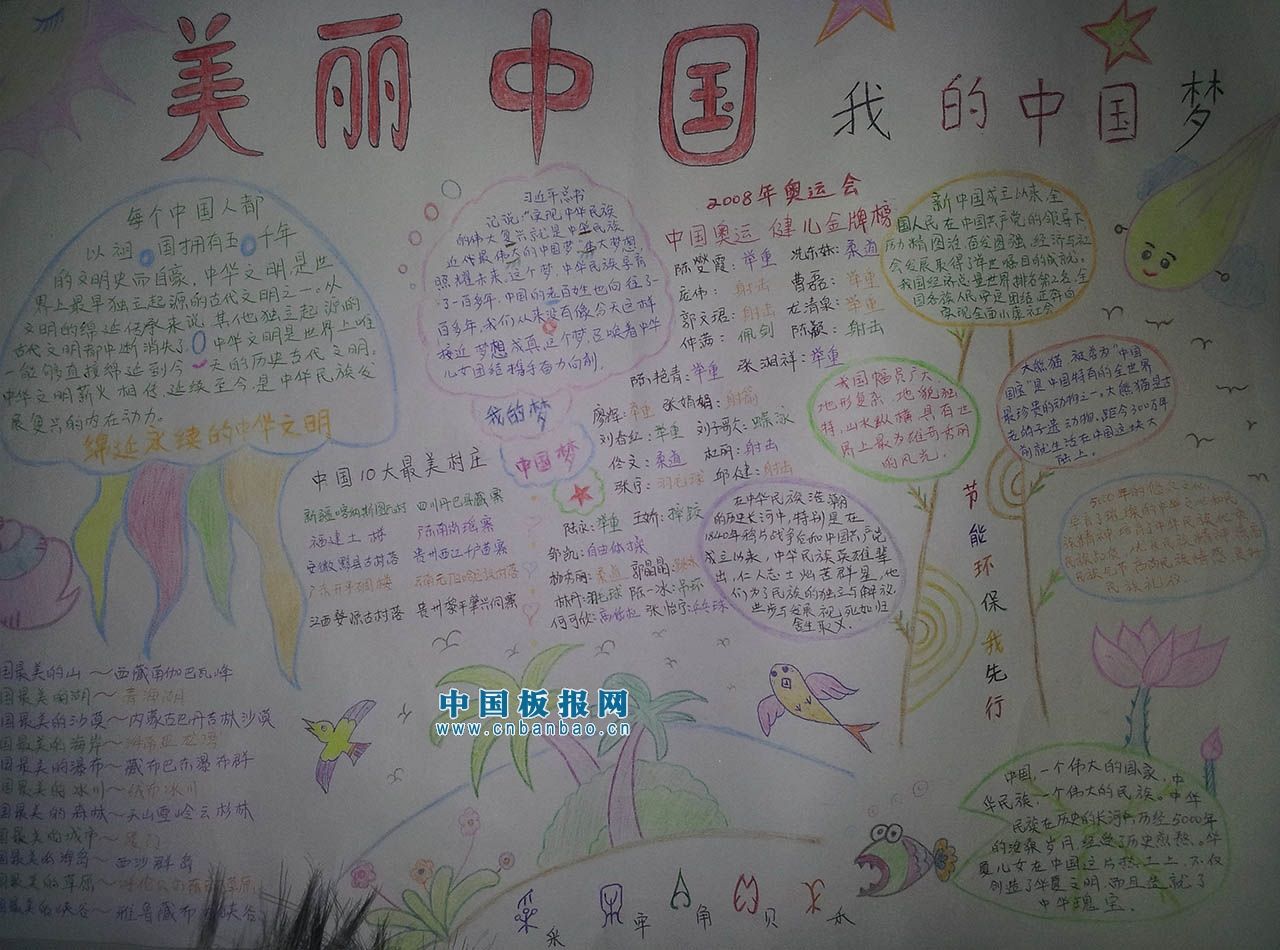 美丽中国
我的中国梦
每个中国人都
以祖国拥有五千年
的文明史而自豪，中华文明，是世
界上最早独立起源的古代文明之一。从
文明的绵延传承来说，其他独立起源的
古代文明都中断消失了，中华文明是世界上唯
一能够直接绵延到今天的历史古代文明。
中华文明薪火相传，延续至今是中华民族发
展复兴的内在动力。
绵延永续的中华文明
习近平总书
记说："实现中华民族
的伟大复兴就是中华民族
近代最伟大的中国梦。"伟大梦想，
照耀未来，这个梦，中华民族孕育
了一百多年，中国的老百姓也向往了一
百多年，我们从来没有像今天这样
接近梦想成真，这个梦，召唤着中华
儿女团结携手奋力向前。
我的梦
中国梦
2008年奥运会
中国奥运健儿金牌榜
陈燮霞：举重 冼东妹：柔道
庞伟：射击 曹磊：举重
郭文珺：射击 龙清泉：举重
仲满：佩剑 陈颖：射击
陈艳青：举重 张湘祥：举重
廖辉：举重 张娟娟：射箭
刘春红：举重 刘子歌：蝶泳
佟文：柔道 杜丽：射击
张宁：羽毛球 邱健：射击
陆永：举重 王娇：摔跤
邹凯：自由体操
杨秀丽：柔道 郭晶晶：跳水
林丹：羽毛球 陈一冰：吊环
何可欣：高低杠 张怡宁：乒乓球
新中国成立以来，全
国人民在中国共产党的领导下
励精图治，奋发图强，经济与社
会发展取得了举世瞩目的成就。
我国经济总量世界排名第2名，全
国各族人民安定团结正奔向
实现全面小康社会
我国幅员广大，
地形复杂，地貌独
特，山水纵横，具有世
界上最为雄奇秀丽
的风光。
大熊猫，被誉为"中国
国宝"是中国特有的全世界
最珍贵的动物之一。大熊猫是古
老的孑遗动物，距今300万年
前就生活在中国这块大
陆上。
中国10大最美村庄
新疆喀纳斯图瓦村 四川丹巴县藏寨
福建土楼 广东南岗瑶寨
安徽黟县古村落 贵州西江千户苗寨
广东开平碉楼 云南元阳哈尼族村落
江西婺源古村落 贵州黎平肇兴侗寨
在中华民族浩瀚
的历史长河中，特别是在
1840年鸦片战争后和中国共产党
成立以来，中华民族英雄辈
出，仁人志士灿若群星，他
们为了民族的独立与解放，
进步与发展，视死如归
舍生取义。
节能环保我先行
5000年的悠久文化
国最美的山～西藏南伽巴瓦峰
国最美的湖～青海湖
国最美的沙漠～内蒙古巴丹吉林沙漠
国最美的海岸～海南亚龙湾
国最美的瀑布～藏布巴东瀑布群
国最美的冰川～绒布冰川
国最美的森林～天山雪岭云杉林
国最美的城市～厦门
国最美的海岛～西沙群岛
国最美的草原～呼伦贝尔东部草原
国最美的峡谷～雅鲁藏布大峡谷
中国板报网
www.cnbanbao.cn
中国，一个伟大的国家，中
华民族，一个伟大的民族。中华
民族在历史的长河中，历经5000年
的沧桑岁月，经受了历史愈愁，华
夏儿女在中国这片热土上，不仅
创造了华夏文明，而且造就了
中华瑰宝。
采 牢 角 贝 禾